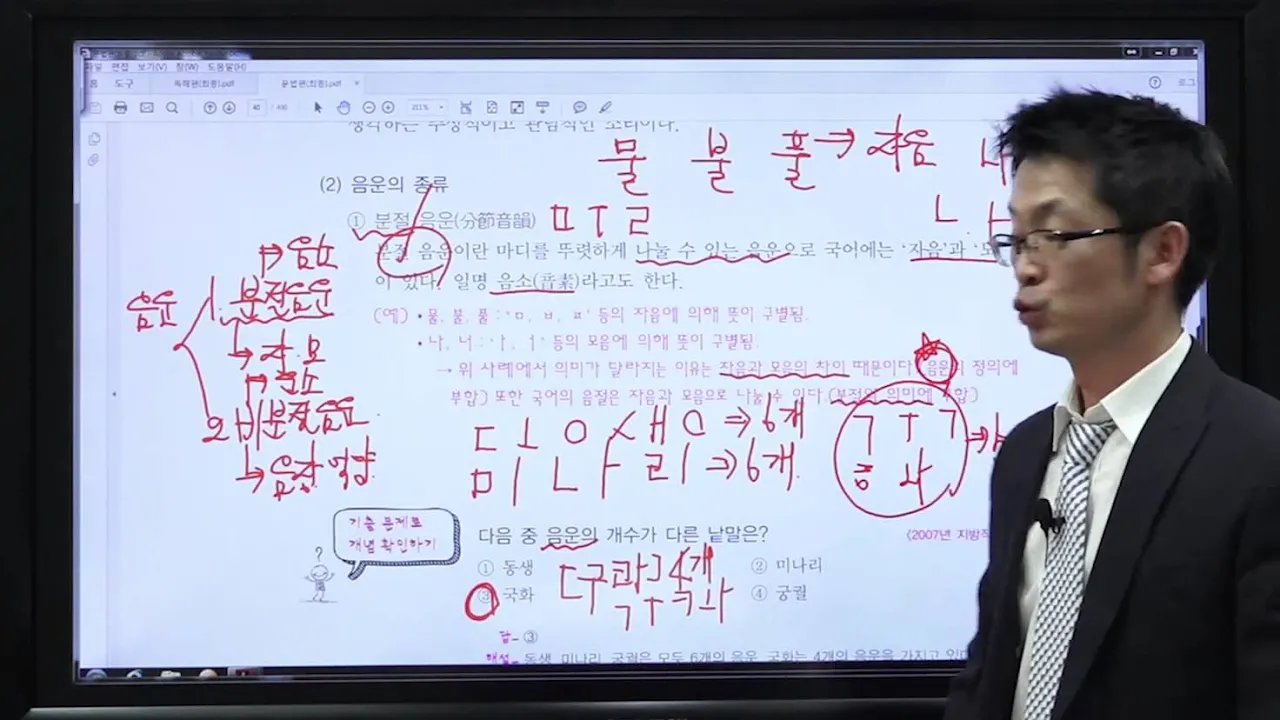 파일 편집 보기(V) 창(W) 도움말(H)
홈 도구 독해편(최종).pdf 문법편(최종).pdf × 로그
211%
생각하는 추상적이고 관념적인 소리이다.
물 불 풀 → 자음 나
(2) 음운의 종류
① 분절 음운(分節音韻)
ㅁㅜㄹ
ㄴ ㅏ
분절 음운이란 마디를 뚜렷하게 나눌 수 있는 음운으로 국어에는 '자음'과 '모
이 있다. 일명 음소(音素)라고도 한다.
→ 음소
음운
1. 분절음운
→ 자, 모
→ 운소
2. 비분절음운
→ 음장, 억양
(예) • 물, 불, 풀 : 'ㅁ, ㅂ, ㅍ' 등의 자음에 의해 뜻이 구별됨.
• 나, 너 : 'ㅏ, ㅓ' 등의 모음에 의해 뜻이 구별됨.
→ 위 사례에서 의미가 달라지는 이유는 자음과 모음의 차이 때문이다.(음운의 정의에
부합) 또한 국어의 음절은 자음과 모음으로 나눌 수 있다.(분절의 의미에 부합)
ㄷ ㅗ ㅇ ㅅ ㅐ ㅇ ⇒ 6개
ㅁ ㅣ ㄴ ㅏ ㄹ ㅣ ⇒ 6개
ㄱ ㅜ ㄱ
ㅎ ㅘ
기출 문제로
개념 확인하기
?
다음 중 음운의 개수가 다른 낱말은?
〈2007년 지방직
① 동생
② 미나리
③ 국화
④ 궁궐
[구콰] 4개
ㄱ ㅜ ㅋ ㅘ
답_ ③
해설_ 동생, 미나리, 궁궐은 모두 6개의 음운, 국화는 4개의 음운을 가지고 있다